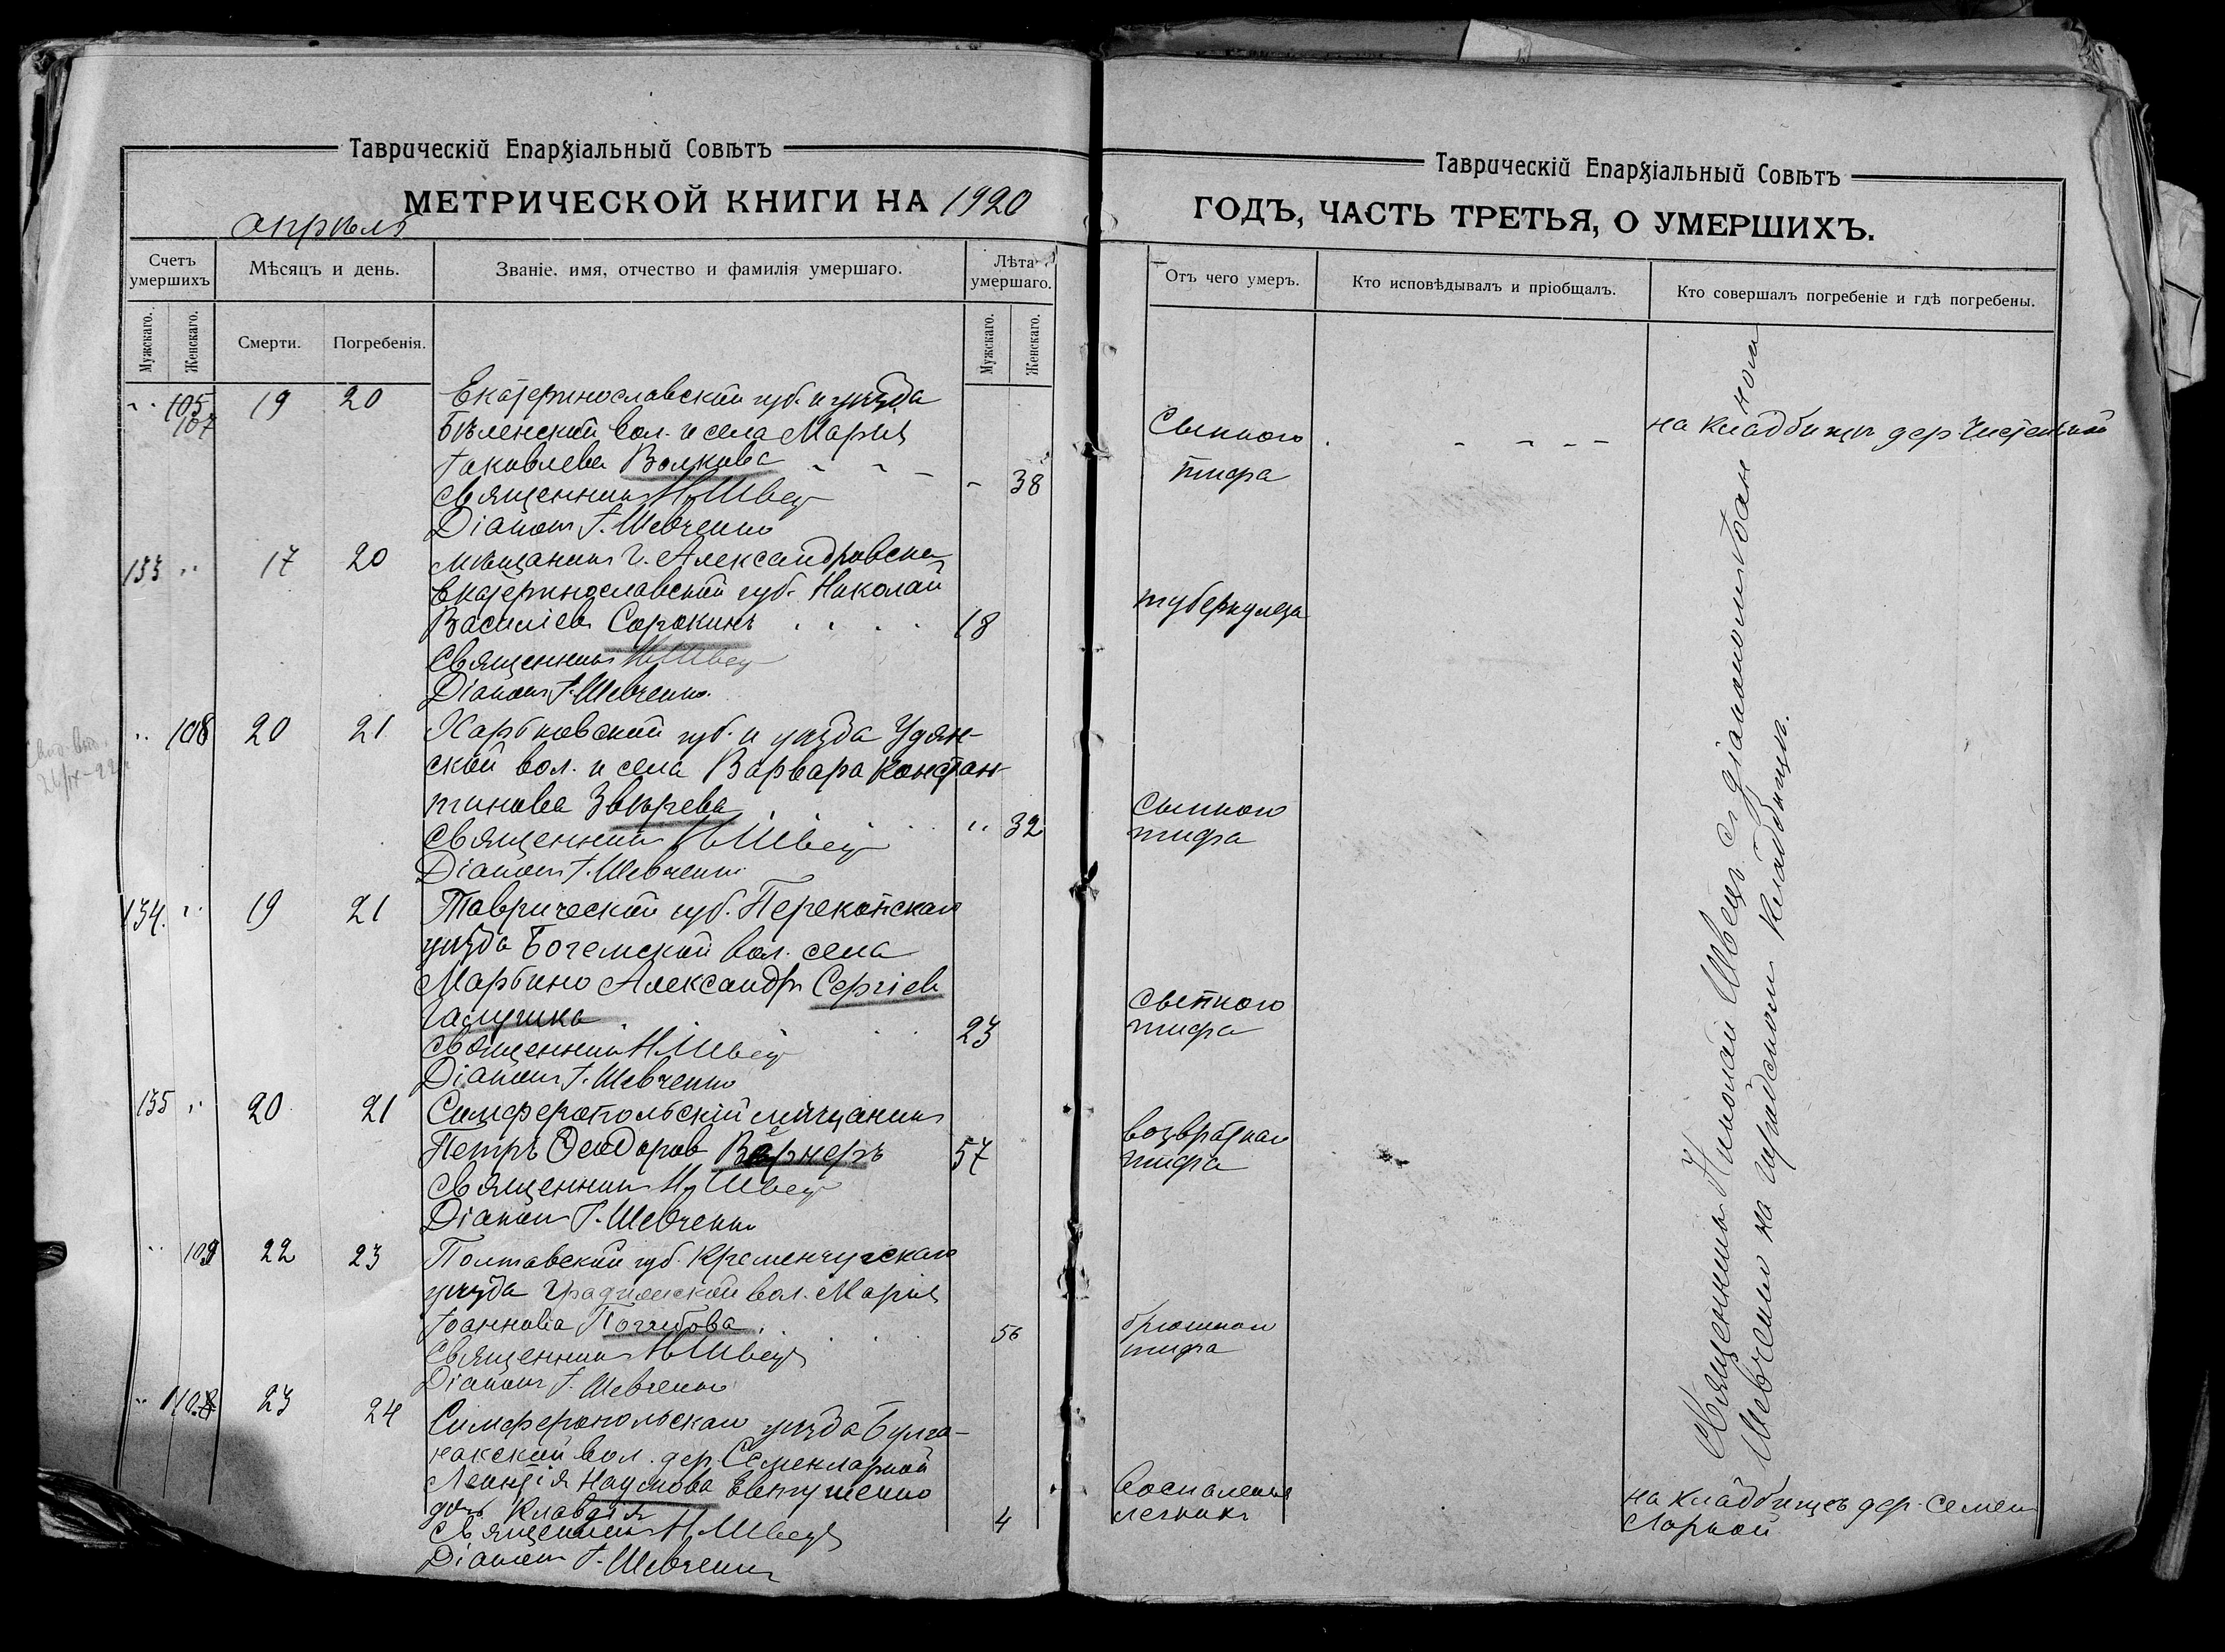 Таврическій Епархіальный Совѣтъ
МЕТРИЧЕСКОЙ КНИГИ НА 1920
апрѣль
Счетъ умершихъ
Мѣсяцъ и день.
Званіе, имя, отчество и фамилія умершаго.
Лѣта умершаго.
Мужскаго.
Женскаго.
Смерти.
Погребенія.
Мужскаго.
Женскаго.
105 19 20 Екатеринославской губ. и уѣзда
107 Бѣленской вол. и села Марія
Іаковлева Волкова - - -
- 38
Священникъ Н Швец
Діаконъ І. Шевченко
133 " 17 20 мѣщанинъ г. Александровска
Екатеринославской губ. Николай
Василіев Сорокинъ . . . . 18
Священникъ Н Швец
Діаконъ І. Шевченко.
" 108 20 21 Харьковской губ. и уѣзда Удян-
ской вол. и села Варвара Констан-
тинова Звѣрева
" 32
Священникъ Н Швец
Діаконъ І. Шевченко
134. " 19 21 Таврической губ. Перекопскаго
уѣзда Богемской вол. села
Марьино Александръ Сергіев
Галушка 23
Священникъ Н Швец
Діаконъ І. Шевченко
135 " 20 21 Симферопольскій мѣщанинъ
Петръ Ѳеодоров Вернеръ 57
Священникъ Н Швец
Діаконъ І. Шевченко
" 109 22 23 Полтавской губ. Кременчугскаго
уѣзда Градижской вол. Марія
Іоаннова 56
Священникъ Н Швец
Діаконъ І. Шевченко
" 110 23 24 Симферопольскаго уѣзда Булга-
накской вол. дер.
Леонтія Наумова Евтушенко
дочь Клавдія 4
Священникъ Н Швец
Діаконъ І. Шевченко
Таврическій Епархіальный Совѣтъ
ГОДЪ, ЧАСТЬ ТРЕТЬЯ, О УМЕРШИХЪ.
Отъ чего умеръ.
Кто исповѣдывалъ и пріобщалъ.
Кто совершалъ погребеніе и гдѣ погребены.
Сыпного . - - - - на кладбищѣ дер. Чистенькой
тифа
туберкулеза
сыпного
тифа
сыпного
тифа
возвратнаго
тифа
брюшного
тифа
Воспаленія
легкихъ
Священникъ Николай Швецъ съ діакономъ Іоанном
Шевченко на городском кладбищѣ.
на кладбищѣ дер. Семен
ларной